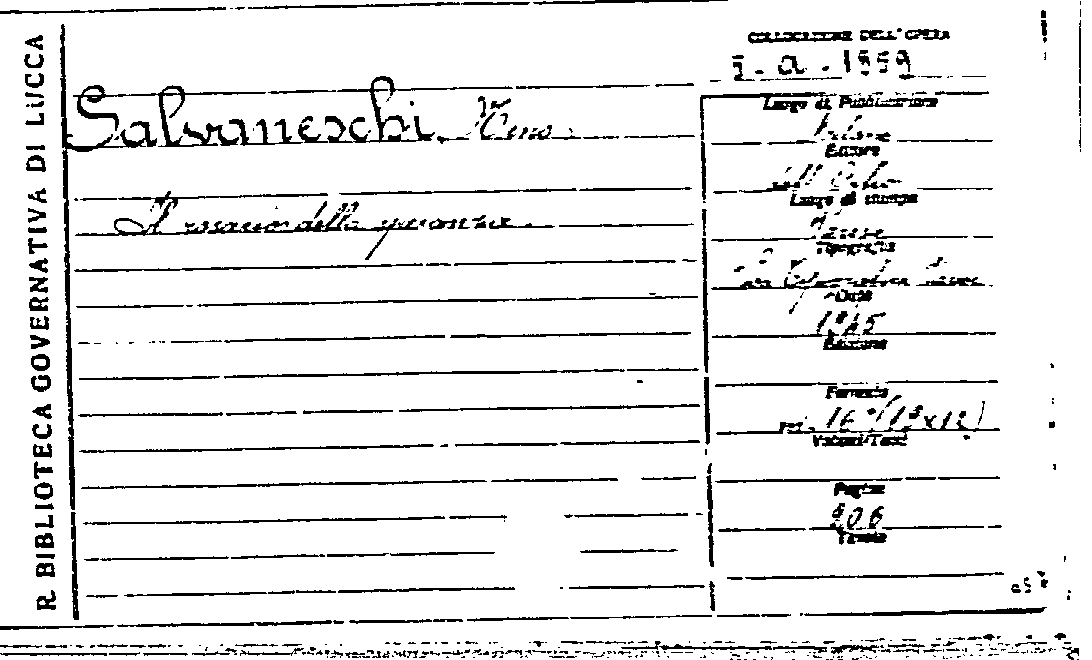 R. BIBLIOTECA GOVERNATIVA DI LUCCA
COLLOCAZIONE DELL'OPERA
a. 1959
Salvaneschi, Nino.
Il rosario della speranza.
Luogo di Pubblicazione
Milano
Editore
dall'Oglio
Luogo di stampa
Varese
Tipografia
La Tipografica Varese
Data
Edizione
Formato
16° (18x12)
Volumi/Tomi
Pagine
206
Tavole